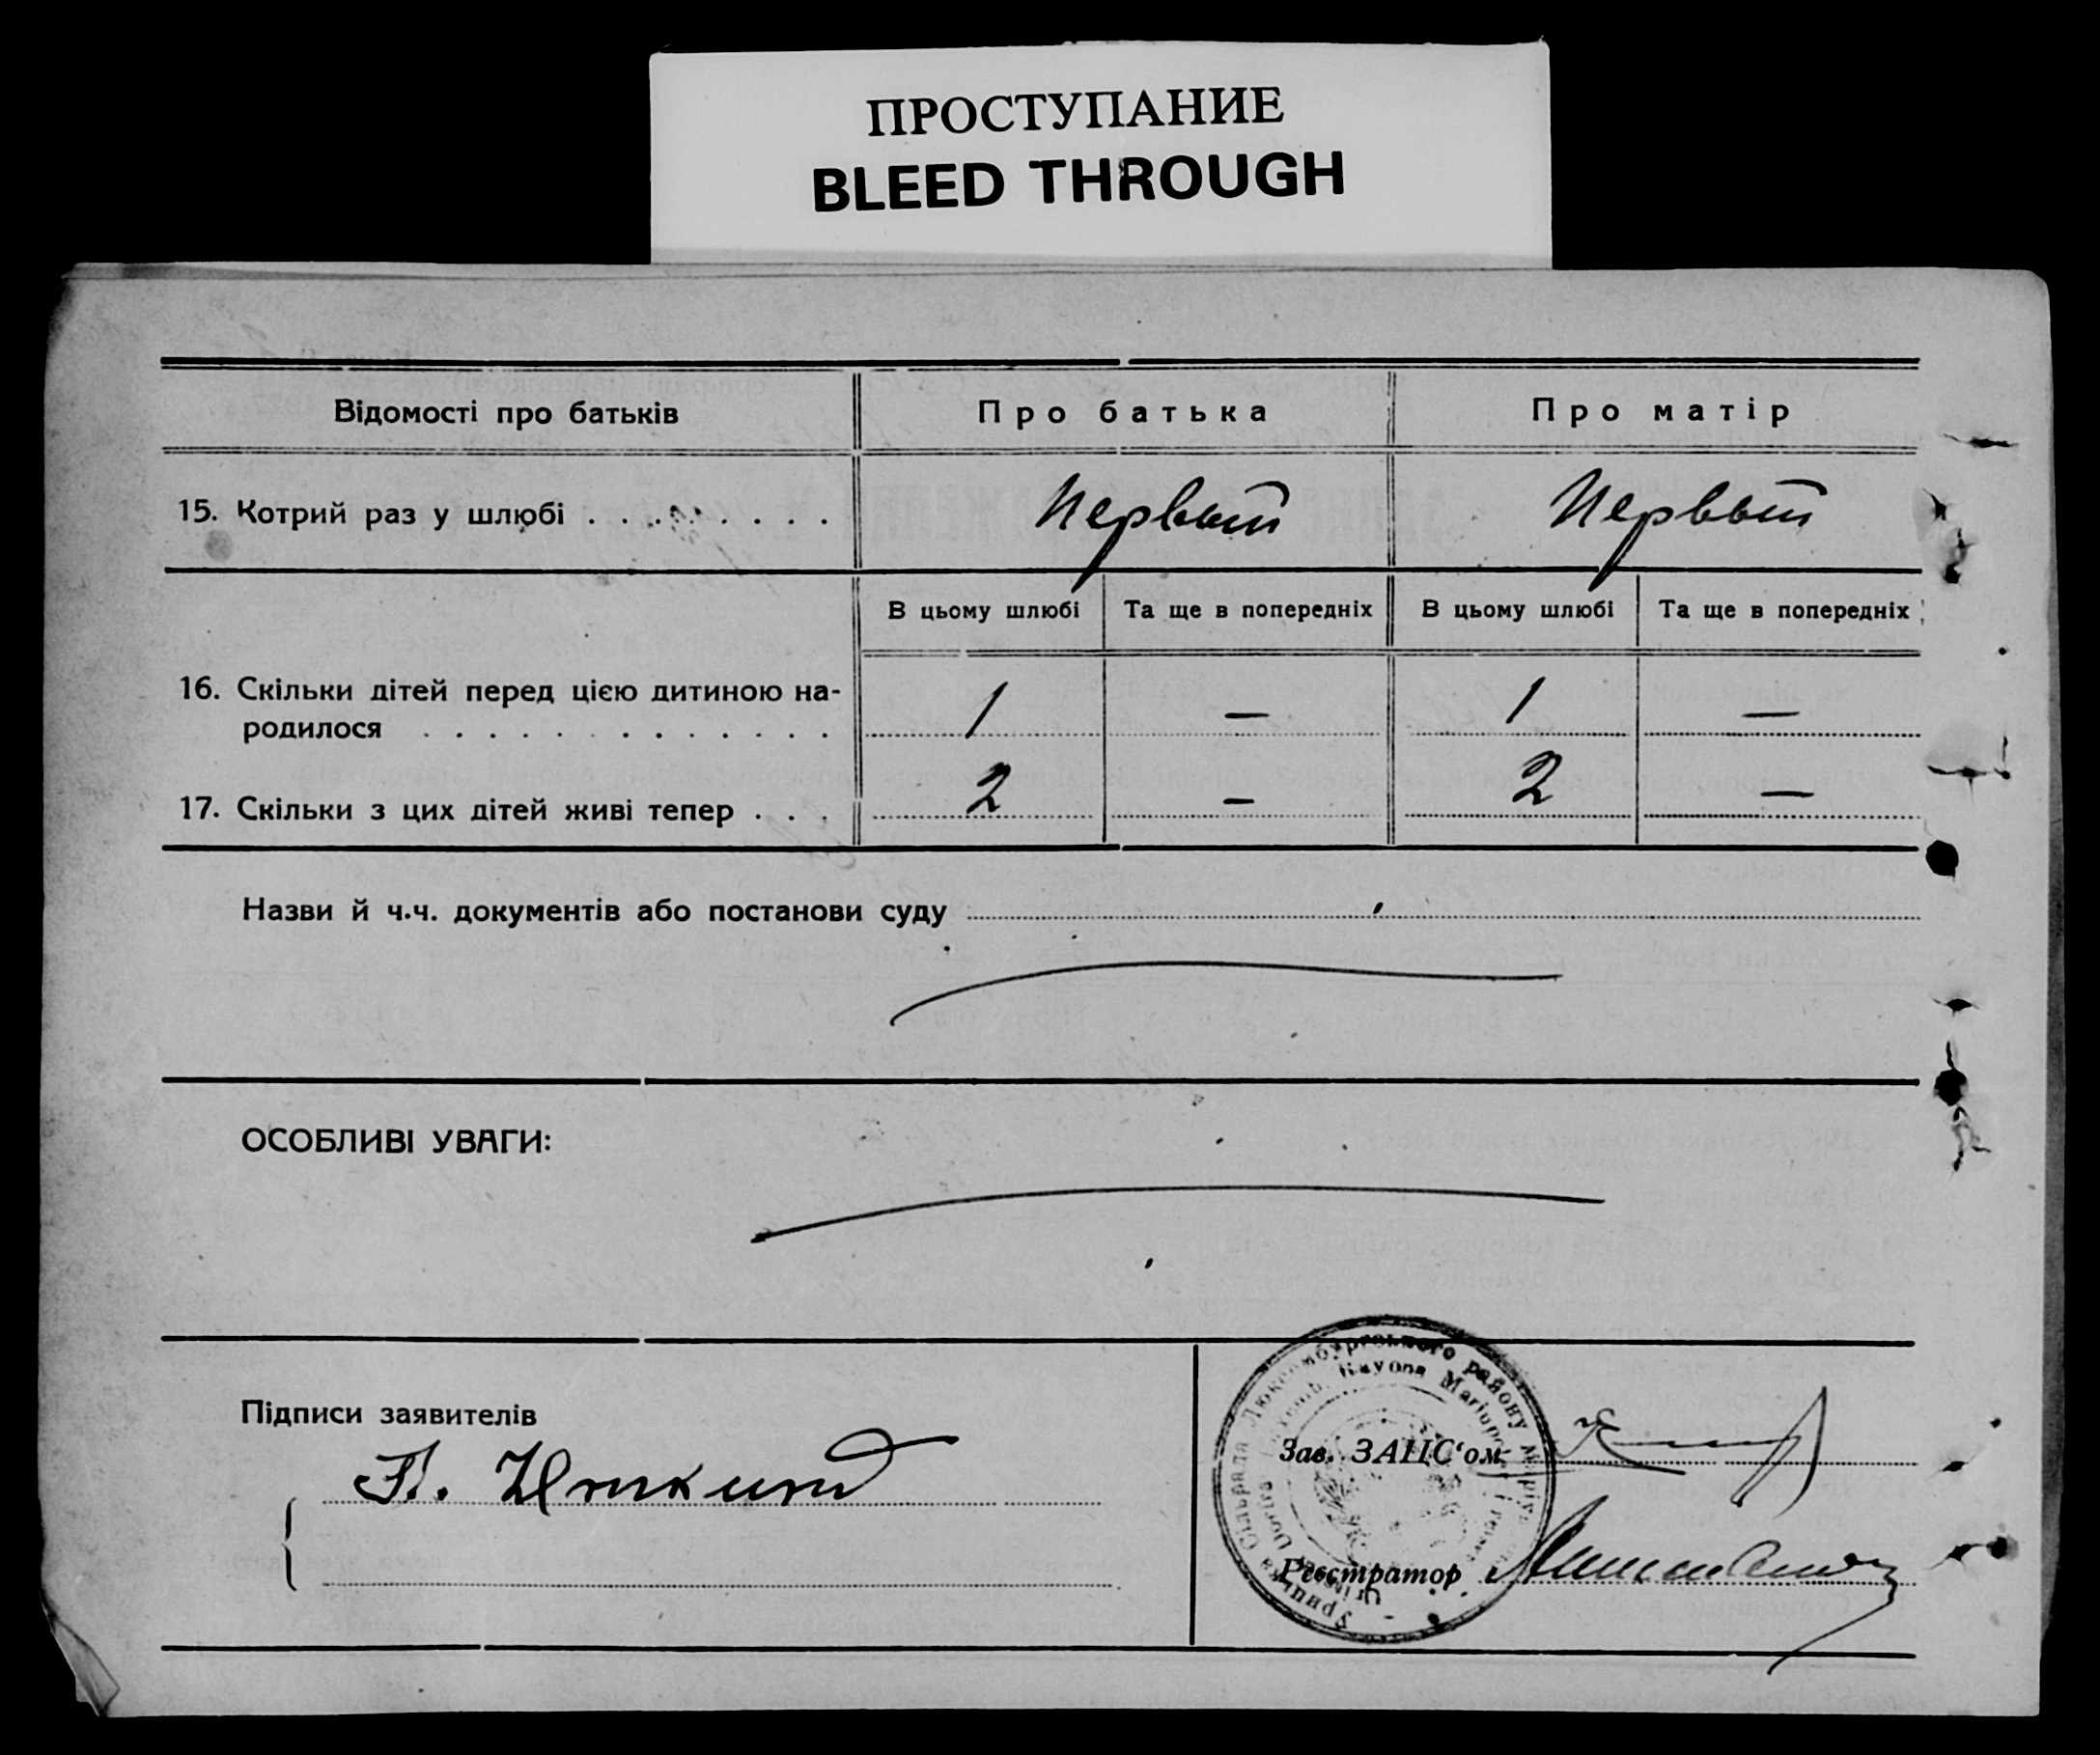 ПРОСТУПАНИЕ
BLEED THROUGH
Відомості про батьків Про батька Про матір
15. Котрий раз у шлюбі . . . . . . . . Первый Первый
В цьому шлюбі Та ще в попередніх В цьому шлюбі Та ще в попередніх
16. Скільки дітей перед цією дитиною на-
родилося . . . . . . . . . . . . . 1 — 1 —
17. Скільки з цих дітей живі тепер . . . 2 — 2 —
Назви й ч.ч. документів або постанови суду
ОСОБЛИВІ УВАГИ:
Підписи заявителів
Зав. ЗАПС'ом
Реєстратор
Люксембургського району
Rayons